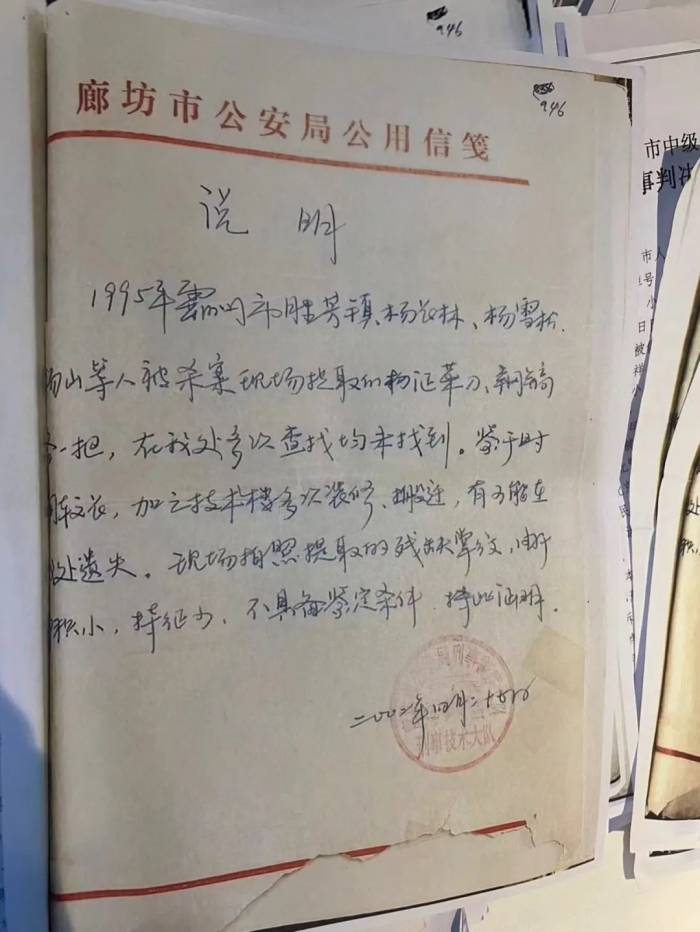 946
946
廊坊市公安局公用信笺
说 明
1995年霸州市胜芳镇杨 林、杨雪松、
山等人被杀案现场提取的物证菜刀、钢镐
一把，在我处多次查找均未找到。鉴于时
间较长，加之技术楼多次装修、搬迁，有可能在
处遗失。现场拍照提取的残缺掌纹，由于
积小，特征少，不具备鉴定条件，特此证明。
二00二年 月二十
技术大队
市中级
事判决
市人
号
小
日被